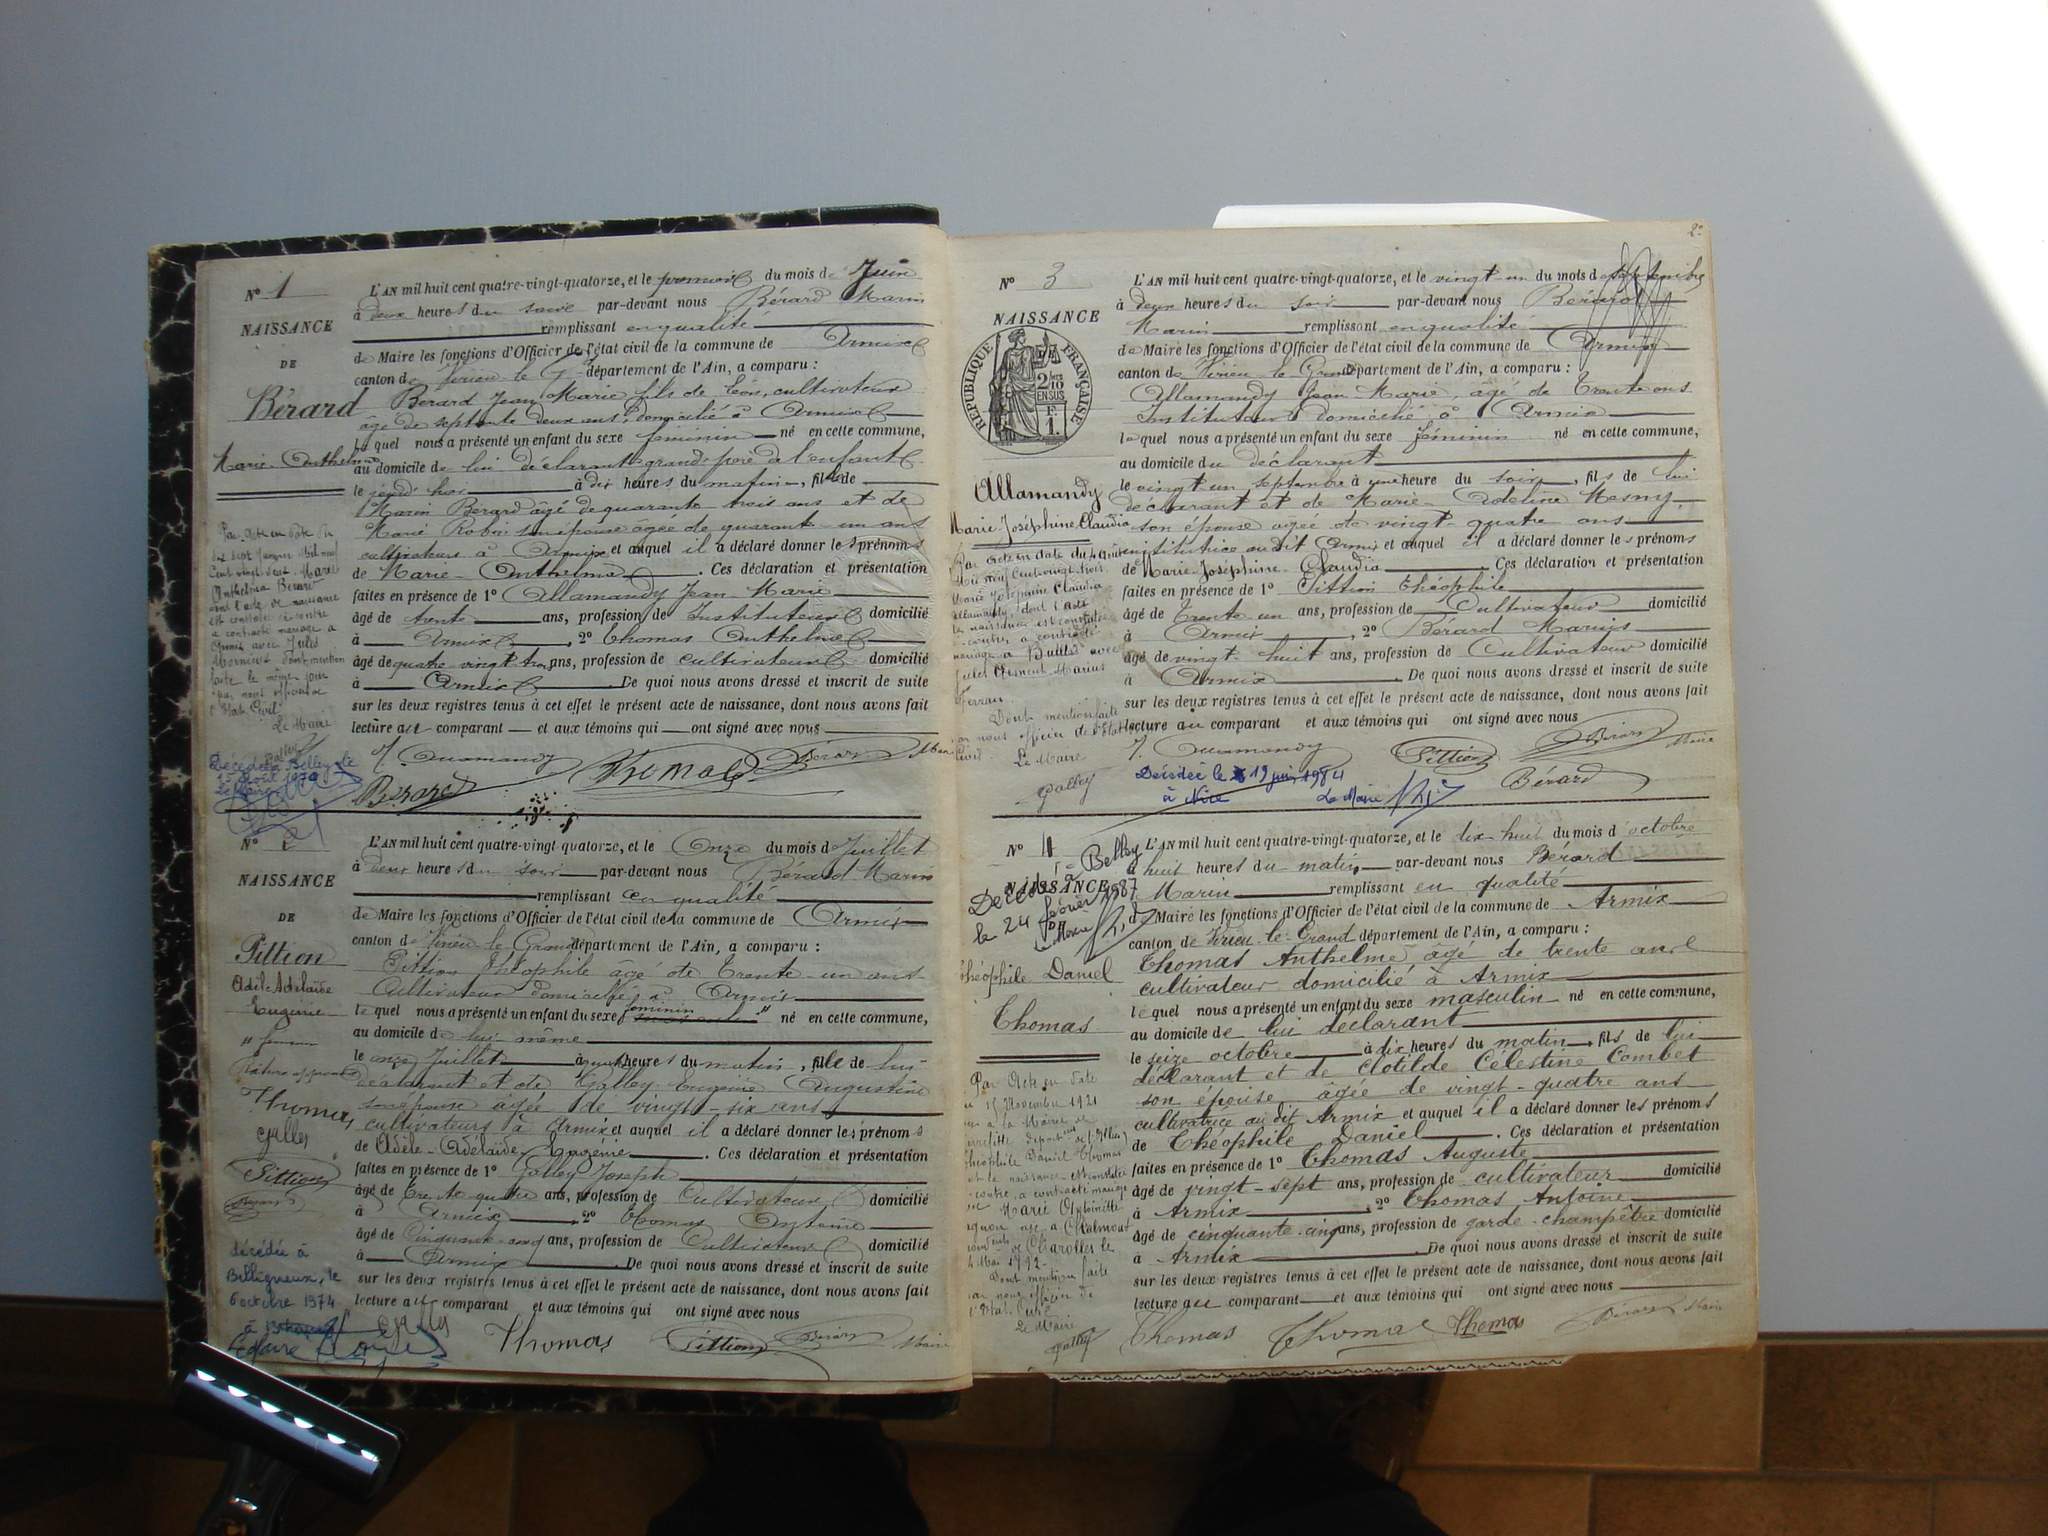 Nº 1
NAISSANCE
DE
Bérard
Marie-Anthelma
L'AN mil huit cent quatre-vingt-quatorze, et le premier du mois de Juin
à deux heures du soir par-devant nous Bérard Marin
remplissant en qualité
de Maire les fonctions d'Officier de l'état civil de la commune de Armix
canton de Virieu-le-Gd département de l'Ain, a comparu :
Bérard Jean Marie fils de Léon, cultivateur
âgé de septante deux ans, domicilié à Armix
lequel nous a présenté un enfant du sexe féminin né en cette commune,
au domicile de lui déclarant grand-père de l'enfant
le jeudi hui à dix heures du matin, fille de
Marin Berard âgé de quarante trois ans et de
Marie Robin son épouse âgée de quarante un ans
cultivateurs à Armix et auquel il a déclaré donner les prénoms
de Marie-Anthelma. Ces déclaration et présentation
faites en présence de 1º Allamandy Jean-Marie
âgé de trente ans, profession de Instituteur domicilié
à Armix, 2º Thomas Anthelme
âgé de quatre vingt trois ans, profession de cultivateur domicilié
à Armix. De quoi nous avons dressé et inscrit de suite
sur les deux registres tenus à cet effet le présent acte de naissance, dont nous avons fait
lecture au comparant et aux témoins qui ont signé avec nous
J. Allamandy Thomas Bérard Maire
Bérard
Par acte en date du
sept Janvier Mil neuf
Cent vingt sept. Marie
Anthelma Bérard
dont l'acte de naissance
est constaté ci-contre
a contracté mariage à
Armix avec Jules
dont mention
faite le même jour
par nous officier de
l'Etat-Civil
Le Maire
Décédée à Belley le
Août 1970
Le Maire
Nº 2
NAISSANCE
DE
Pittion
Adèle Adelaïde
Eugénie
" féminin
Rature approuvée
Thomas
Galley
Pittion
Bérard
décédée à
Belligneux, le
octobre 1974
L'AN mil huit cent quatre-vingt-quatorze, et le Onze du mois d Juillet
à deux heures du soir par-devant nous Bérard Marin
remplissant en qualité
de Maire les fonctions d'Officier de l'état civil de la commune de Armix
canton de Virieu-le-Grand département de l'Ain, a comparu :
Pittion Théophile âgé de Trente-un ans
Cultivateur domicilié à Armix
lequel nous a présenté un enfant du sexe féminin " né en cette commune,
au domicile de lui-même
le onze Juillet à heures du matin, fille de lui
déclarant et de Galley Eugénie Augustine
son épouse âgée de vingt-six ans
cultivateurs à Armix et auquel il a déclaré donner les prénoms
de Adèle-Adelaïde-Eugénie. Ces déclaration et présentation
faites en présence de 1º Galley Joseph
âgé de Trente quatre ans, profession de Cultivateur domicilié
à Armix, 2º Thomas Antoine
âgé de Cinquante-cinq ans, profession de Cultivateur domicilié
à Armix. De quoi nous avons dressé et inscrit de suite
sur les deux registres tenus à cet effet le présent acte de naissance, dont nous avons fait
lecture au comparant et aux témoins qui ont signé avec nous
Galley Thomas Pittion Bérard Maire
2e
Nº 3
NAISSANCE
RÉPUBLIQUE FRANÇAISE
2/10
EN SUS
1 F.
Allamandy
Marie Joséphine Claudia
L'AN mil huit cent quatre-vingt-quatorze, et le vingt-un du mois d septembre
à deux heures du soir par-devant nous Bérard
Marin remplissant en qualité
de Maire les fonctions d'Officier de l'état civil de la commune de Armix
canton de Virieu-le-Grand département de l'Ain, a comparu :
Allamandy Jean-Marie, âgé de Trente ans
Instituteur domicilié à Armix
lequel nous a présenté un enfant du sexe féminin né en cette commune,
au domicile du déclarant
le vingt un septembre à une heure du soir, fils de lui
déclarant et de Marie-Adeline Mesny
son épouse agée de vingt-quatre ans
institutrice au dit Armix et auquel il a déclaré donner les prénoms
de Marie-Joséphine-Claudia. Ces déclaration et présentation
faites en présence de 1º Pittion Théophile
âgé de Trente un ans, profession de Cultivateur domicilié
à Armix, 2º Bérard Marius
âgé de vingt-huit ans, profession de Cultivateur domicilié
à Armix. De quoi nous avons dressé et inscrit de suite
sur les deux registres tenus à cet effet le présent acte de naissance, dont nous avons fait
lecture au comparant et aux témoins qui ont signé avec nous
J. Allamandy Pittion Bérard Maire
Bérard
Par acte en date du 4
Mil neuf Cent vingt trois
Marie Joséphine Claudia
Allamandy, dont l'acte
de naissance est constaté
ci-contre, a contracté
mariage à avec
Jules Marius
Ferran
Dont mention faite
par nous officier de l'Etat
Civil
Le Maire
Galley
Décédée le 19 juin 1984
à Nice Le Maire
Nº 4
NAISSANCE
Décédé à Belley
le 24 février 1987
Le Maire
Théophile Daniel
Thomas
L'AN mil huit cent quatre-vingt-quatorze, et le dix-huit du mois d'octobre
à huit heures du matin par-devant nous Bérard
Marin remplissant en qualité
de Maire les fonctions d'Officier de l'état civil de la commune de Armix
canton de Virieu-le-Grand département de l'Ain, a comparu :
Thomas Anthelme âgé de trente ans
cultivateur domicilié à Armix
lequel nous a présenté un enfant du sexe masculin né en cette commune,
au domicile de lui déclarant
le seize octobre à dix heures du matin, fils de lui
déclarant et de Clotilde Célestine Combet
son épouse âgée de vingt-quatre ans
cultivatrice au dit Armix et auquel il a déclaré donner les prénoms
de Théophile Daniel. Ces déclaration et présentation
faites en présence de 1º Thomas Auguste
âgé de vingt-sept ans, profession de cultivateur domicilié
à Armix, 2º Thomas Antoine
âgé de cinquante-cinq ans, profession de garde-champêtre domicilié
à Armix. De quoi nous avons dressé et inscrit de suite
sur les deux registres tenus à cet effet le présent acte de naissance, dont nous avons fait
lecture au comparant et aux témoins qui ont signé avec nous
Thomas Thomas Thomas Bérard Maire
Par Acte en date
du 15 Novembre 1921
à la Mairie de
Pierrefitte département de l'Allier
Théophile Daniel Thomas
dont la naissance est constatée
ci-contre, a contracté mariage
avec Marie Antoinette
née à Chalmoux
de Charolles le
Mai 1892
Dont mention faite
par nous officier de
l'Etat-Civil
Le Maire
Galley